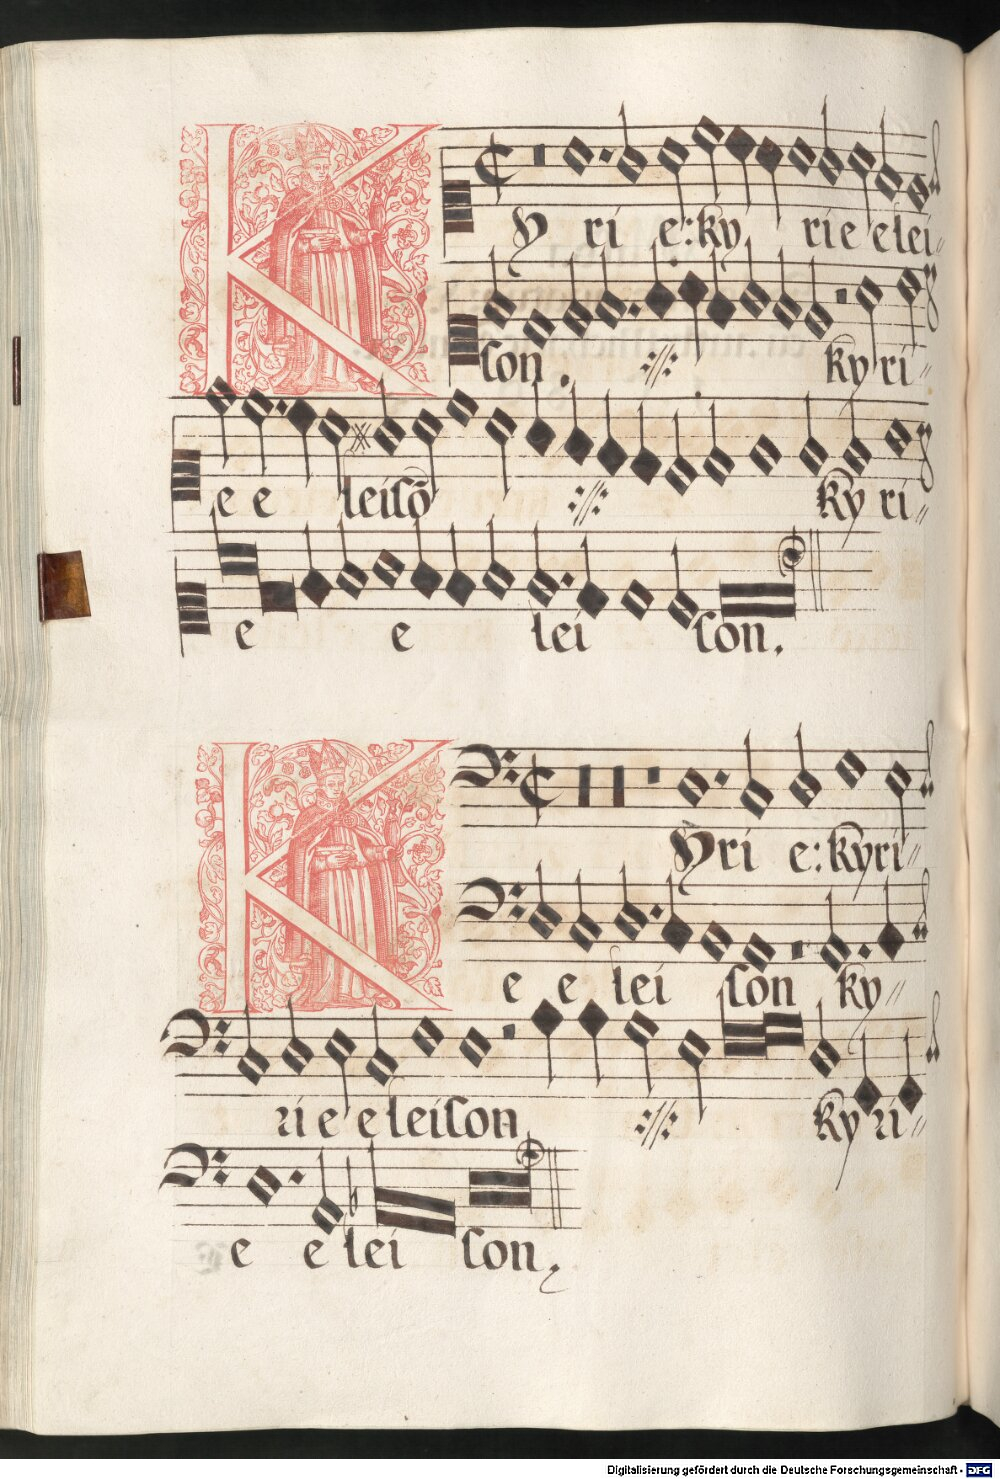 Kyrie: ky rie elei//
son. ://: ky ri//
e e leisō ://: ky ri//
e e lei son.
Kyrie: kyri//
e e lei son ky//
ri e eleison :// : ky ri//
e e lei son.
Digitalisierung gefördert durch die Deutsche Forschungsgemeinschaft - DFG